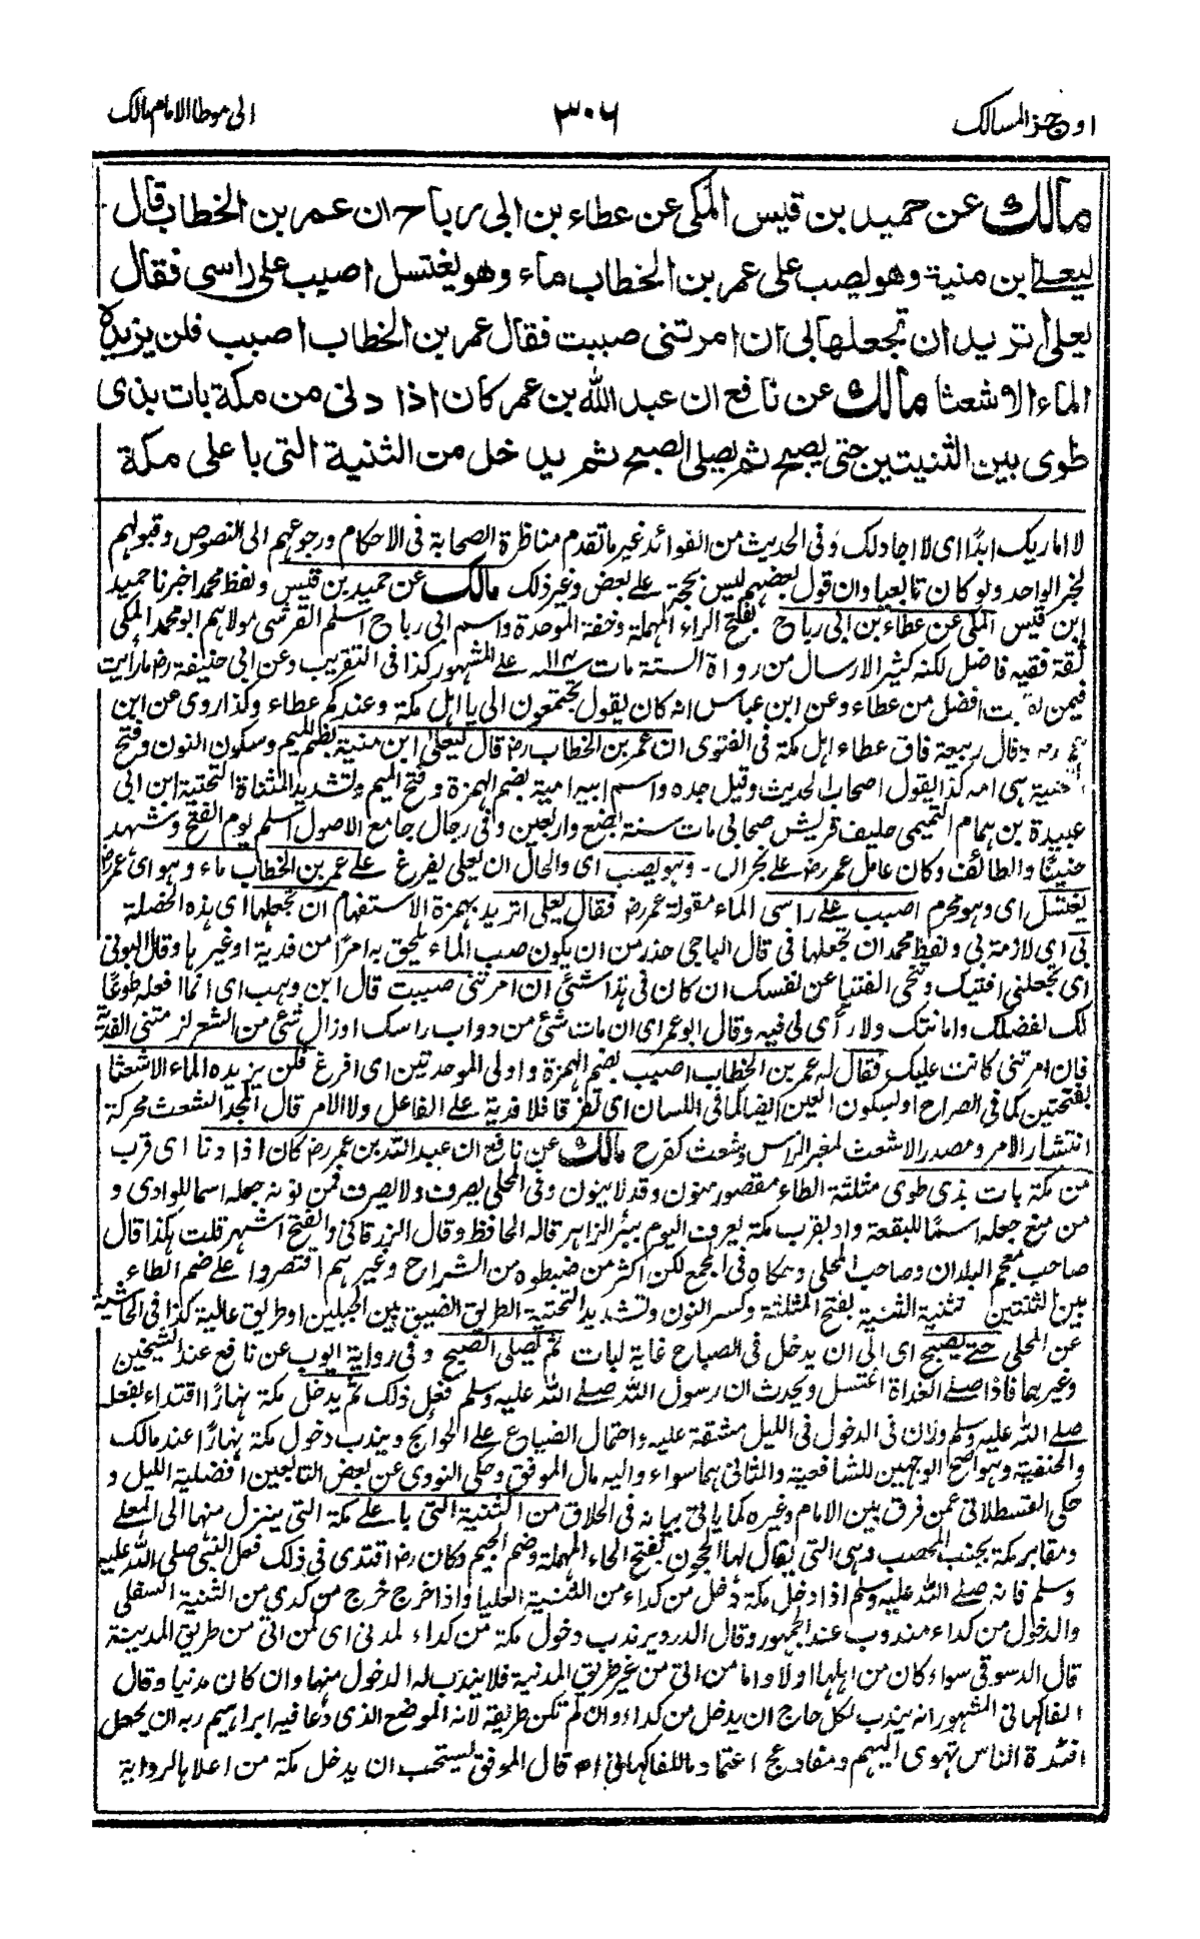 اوجز المسالك
٣٠٦
الى موطا الامام مالك
مالك عن حميد بن قيس المكى عن عطاء بن ابى رباح ان عمر بن الخطاب قال
ليعلى ابن منية وهو يصب على عمر بن الخطاب ماء وهو يغتسل اصبب على راسى فقال
يعلى أتريد ان تجعلها بى ان امرتنى صببت فقال عمر بن الخطاب اصبب فلن يزيده
الماء الا شعثا مالك عن نافع ان عبد الله بن عمر كان اذا دنى من مكة بات بذى
طوى بين الثنيتين حتى يصبح ثم يصلى الصبح ثم يدخل من الثنية التى باعلى مكة
لا اماريك ابدًا اى لا اجادلك وفى الحديث من الفوائد غير ما تقدم مناظرة الصحابة فى الاحكام ورجوعهم الى النصوص وقبولهم
لخبر الواحد ولو كان تابعيا وان قول بعضهم ليس بحجة على بعض وغير ذلك مالك عن حميد بن قيس ولفظ محمد اخبرنا حميد
ابن قيس المكى عن عطاء بن ابى رباح بفتح الراء المهملة وخفة الموحدة واسم ابى رباح اسلم القرشى مولاهم ابو محمد المكى
ثقة فقيه فاضل لكنه كثير الارسال من رواة الستة مات ١١٤ على المشهور كذا فى التقريب وعن ابى حنيفة رض ما رايت
فيمن لقيت افضل من عطاء وعن ابن عباس انه كان يقول تجتمعون الى يا اهل مكة وعندكم عطاء وكذا روى عن ابن
عمر رض وقال ربيعة فاق عطاء اهل مكة فى الفتوى ان عمر بن الخطاب رض قال ليعلى ابن منية بضم الميم وسكون النون وفتح
التحتية هى امه كذا يقول اصحاب الحديث وقيل جده واسم ابيه امية بضم الهمزة وفتح الميم وتشديد المثناة التحتية ابن ابى
عبيدة بن همام التميمى حليف قريش صحابى مات سنة بضع واربعين وفى رجال جامع الاصول اسلم يوم الفتح وشهد
حنينًا والطائف وكان عامل عمر رض على نجران - وهو يصب اى والحال ان يعلى يفرغ على عمر بن الخطاب ماء وهو اى عمر رض
يغتسل اى وهو محرم اصبب على راسى الماء مقولة عمر رض فقال يعلى اتريد بهمزة الاستفهام ان تجعلها اى هذه الخصلة
بى اى لازمة بى ولفظ محمد ان تجعلها فى قال الباجى حذر من ان يكون صب الماء يلحق به امرًا من فدية او غيرها وقال البونى
اى تجعلنى افتيك وتنحى الفتيا عن نفسك ان كان فى هذا شئ ان امرتنى صببت قال ابن وهب اى انما افعله طوعًا
لك لفضلك وامانتك ولا رأى لى فيه وقال ابو عمر اى ان مات شئ من دواب راسك اوزال شئ من الشعر لزمتنى الفدية
فان امرتنى كانت عليك فقال له عمر بن الخطاب اصبب بضم الهمزة واولى الموحدتين اى افرغ فلن يزيده الماء الا شعثا
بفتحتين كما فى الصراح او بسكون العين ايضا كما فى اللسان اى تفرقا فلا فدية على الفاعل ولا الامر قال المجد الشعث محركة
انتشار الامر ومصدر الاشعث لمغبر الرأس وشعث كفرح مالك عن نافع ان عبد الله بن عمر رض كان اذا دنا اى قرب
من مكة بات بذى طوى مثلثة الطاء مقصور منون وقد لا ينون وفى المحلى يصرف ولا يصرف فمن نونه جعله اسما للوادى و
من منع جعله اسمًا للبقعة واد بقرب مكة يعرف اليوم ببئر الزاهر قاله الحافظ وقال الزرقانى والفتح اشهر قلت هكذا قال
صاحب معجم البلدان وصاحب المحلى وحكاه فى المجمع لكن اكثر من ضبطوه من الشراح وغيرهم اقتصروا على ضم الطاء
بين الثنتين تثنية الثنية بفتح المثلثة وكسر النون وتشديد التحتية الطريق الضيق بين الجبلين او طريق عالية كذا فى الحاشية
عن المحلى حتى يصبح اى الى ان يدخل فى الصباح غاية لبات ثم يصلى الصبح وفى رواية ايوب عن نافع عند الشيخين
وغيرهما فاذا صلى الغداة اغتسل ويحدث ان رسول الله صلى الله عليه وسلم فعل ذلك ثم يدخل مكة نهارًا اقتداء بفعله
صلى الله عليه وسلم ولان فى الدخول فى الليل مشقة عليه واحتمال الضياع على الحوائج ويندب دخول مكة نهارًا عند مالك
والحنفية وهو اصح الوجهين للشافعية والثانى هما سواء واليه مال الموفق وحكى النووى عن بعض التابعين افضلية الليل و
حكى القسطلانى عمن فرق بين الامام وغيره كما ياتى بيانه فى الحلاق من الثنية التى باعلى مكة التى ينزل منها الى المعلى
ومقابر مكة بجنب المحصب وهى التى يقال لها الحجون بفتح الحاء المهملة وضم الجيم وكان رض اقتدى فى ذلك فعل النبى صلى الله عليه
وسلم فانه صلى الله عليه وسلم اذا دخل مكة دخل من كداء من الثنية العليا واذا خرج خرج من كدى من الثنية السفلى
والدخول من كداء مندوب عند الجمهور وقال الدردير ندب دخول مكة من كداء لمدنى اى لمن اتى من طريق المدينة
قال الدسوقى سواء كان من اهلها اولا واما من اتى من غير طريق المدنية فلا يندب له الدخول منها وان كان مدنيا وقال
الفاكهانى المشهور انه يندب لكل حاج ان يدخل من كداء وان لم تكن طريقه لانه الموضع الذى دعا فيه ابراهيم ربه ان يجعل
افئدة الناس تهوى اليهم ومفاد عج اعتماد ما للفاكهانى اه قال الموفق يستحب ان يدخل مكة من اعلاها لرواية